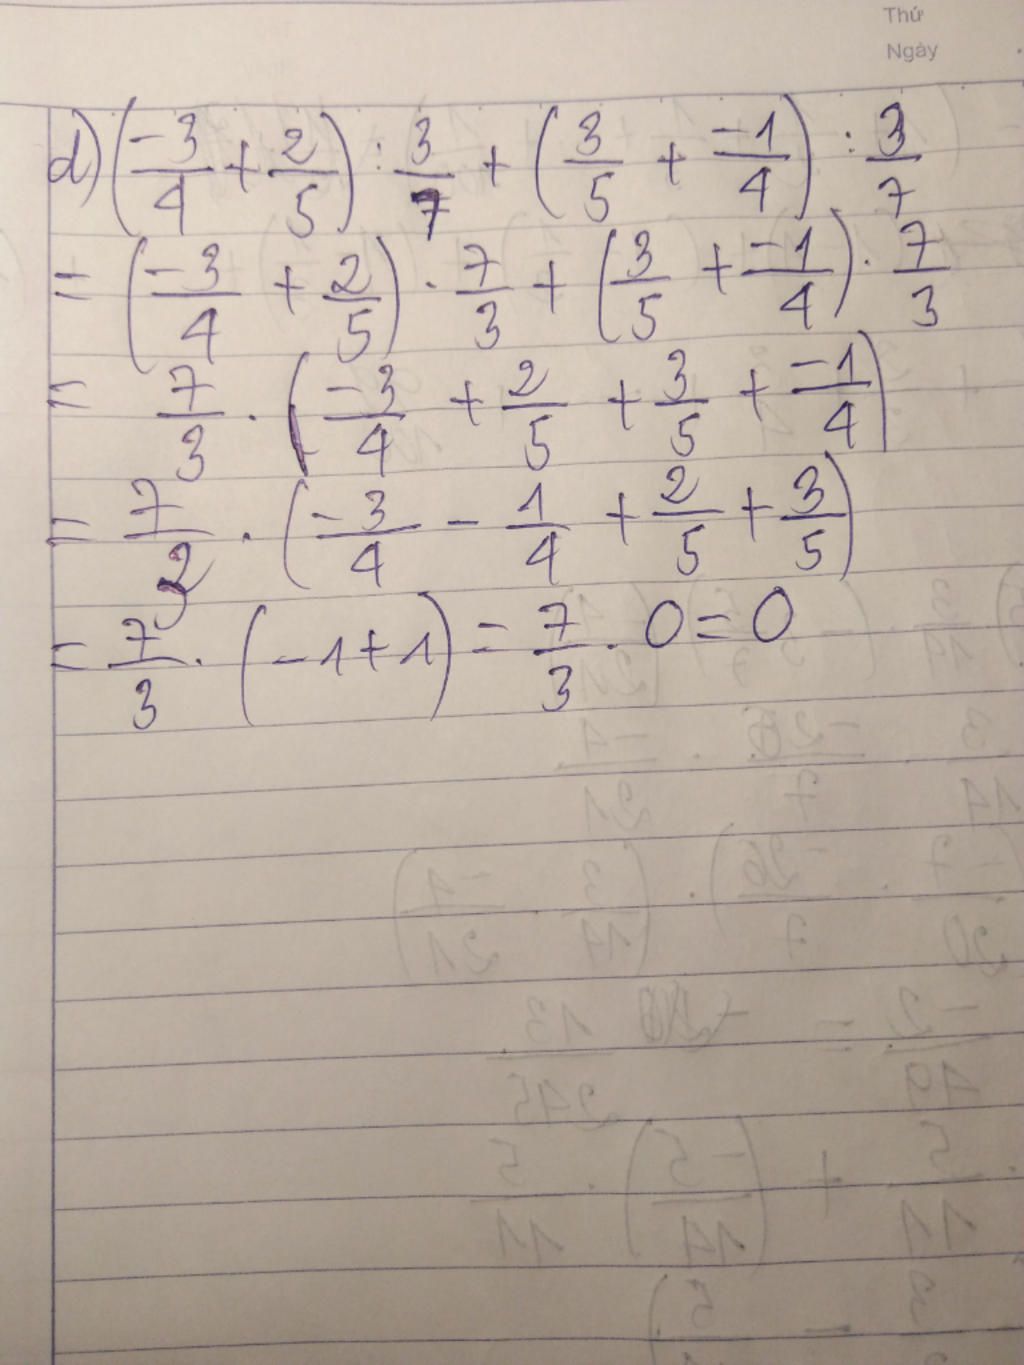 Thứ
Ngày
d) (-3/4 + 2/5) : 3/7 + (3/5 + -1/4) : 3/7
= (-3/4 + 2/5) . 7/3 + (3/5 + -1/4) . 7/3
= 7/3 . (-3/4 + 2/5 + 3/5 + -1/4)
= 7/3 . (-3/4 - 1/4 + 2/5 + 3/5)
= 7/3 . (-1+1) = 7/3 . 0 = 0